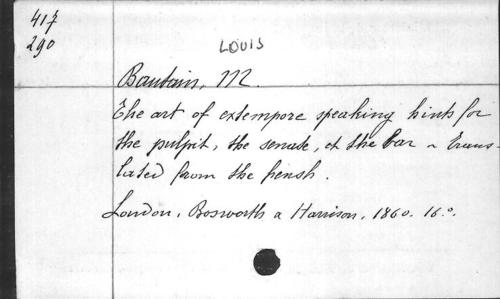 417
290
LOUIS
Bautain, M.
The art of extempore speaking hints for
the pulpit, the senate, et the bar - Trans-
lated from the french.
London, Bosworth a Harrison, 1860. 16.°